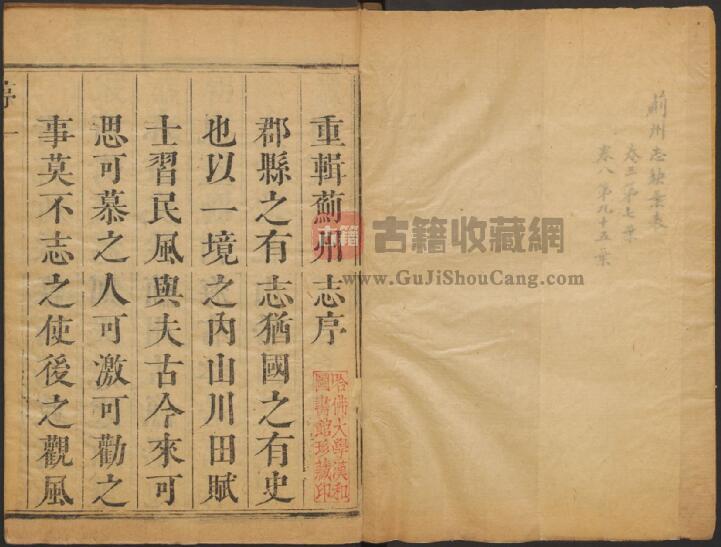 薊州志缺葉表
卷三第七葉
卷八第九十五葉
重輯薊州志序
郡縣之有志猶國之有史
也以一境之內山川田賦
士習民風與夫古今來可
思可慕之人可激可勸之
事莫不志之使後之觀風
序
一
哈佛大學漢和
圖書館珍藏印
古籍
古籍收藏網
www.GuJiShouCang.com